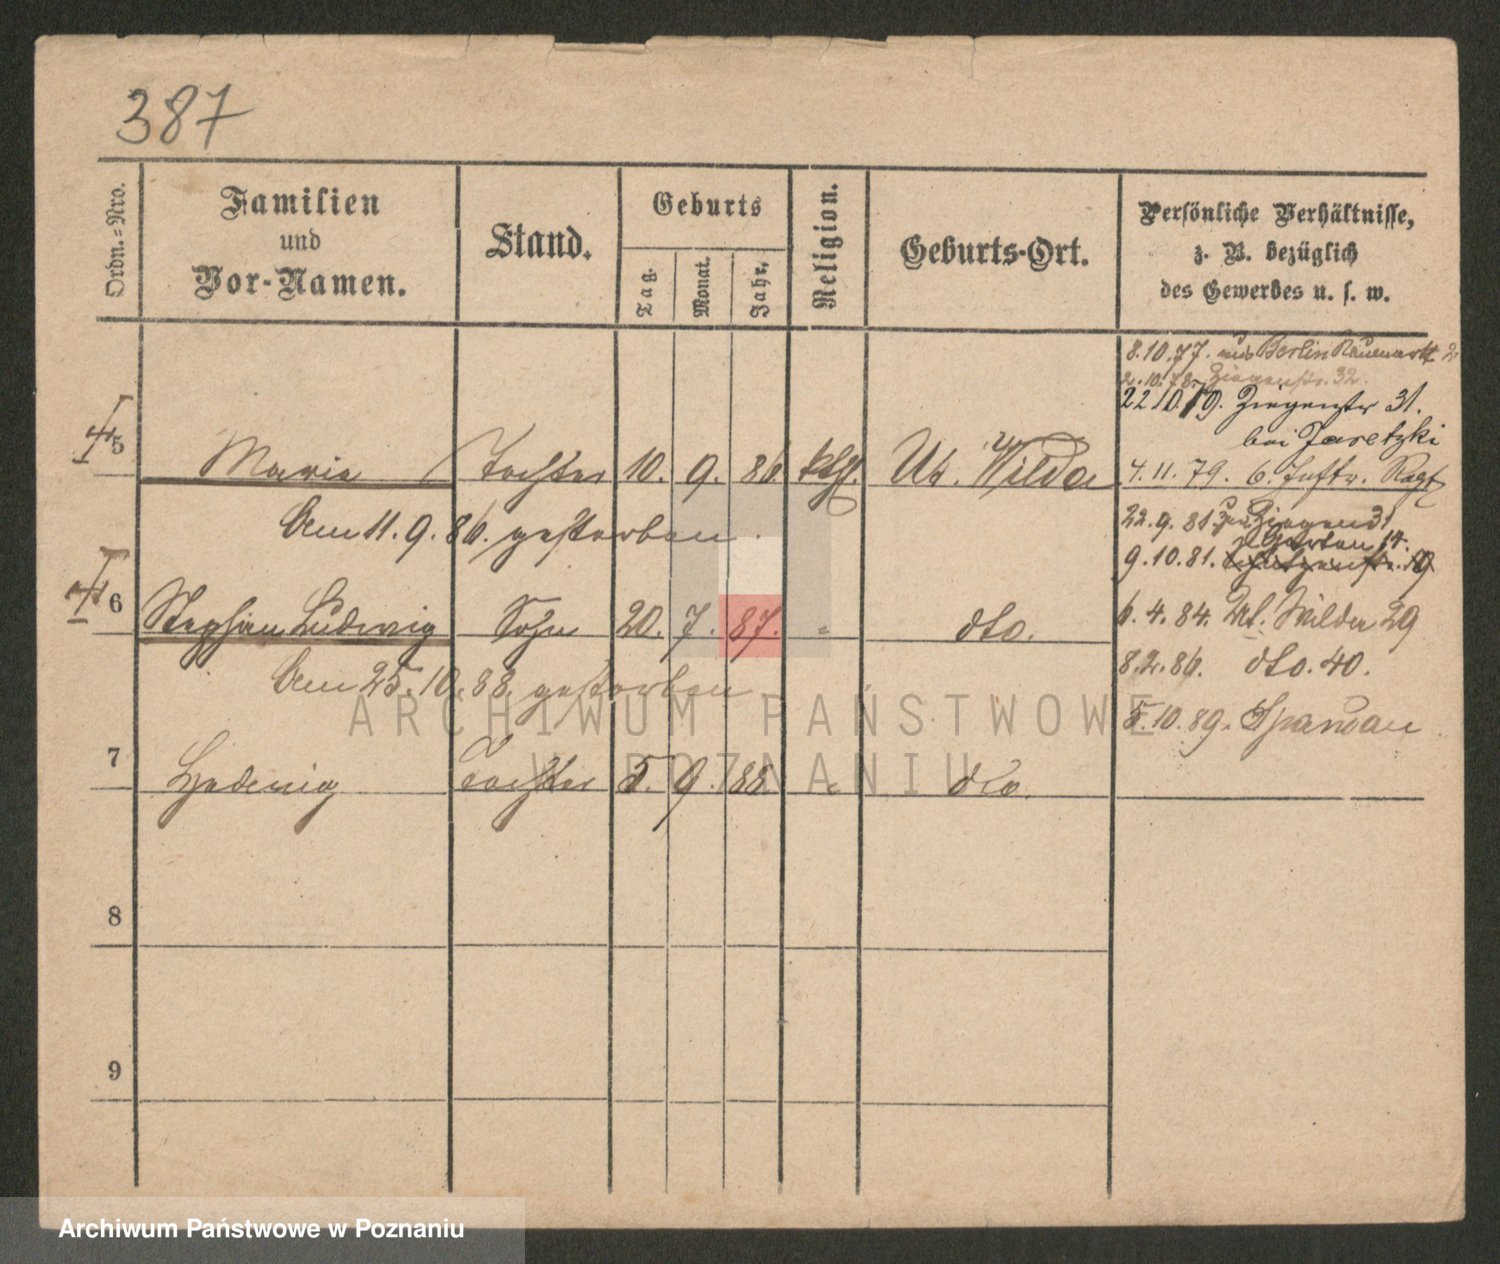 387
Ordn.-Nro.
Familien
und
Vor-Namen.
Stand.
Geburts
Tag.
Monat.
Jahr.
Religion.
Geburts-Ort.
Persönliche Verhältnisse,
z. B. bezüglich
des Gewerbes u. s. w.
8.10.77. aus Berlin
2.10.78. Ziegenstr. 32.
22.10.79. Ziegenstr 31.
bei Jaretzki
4.11.79. 6. Inftr. Regt
22.9.81. Ziegenst 31
Garten 14.
9.10.81.
6.4.84. Wilda 29
8.2.86. dto. 40.
5.10.89. Spandau
5 Maria Tochter 10. 9. 86 kth. Ut. Wilda
Am 11. 9. 86. gestorben.
6 Stephan Ludwig Sohn 20. 7. 87. " dto.
Am 25. 10. 88. gestorben
7 Hedwig Tochter 5. 9. 88 " dto.
8
9
ARCHIWUM PAŃSTWOWE
W POZNANIU
Archiwum Państwowe w Poznaniu